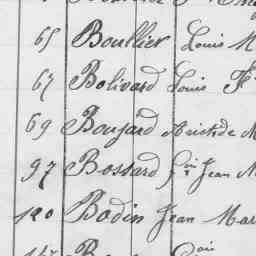 65 Boullier Louis M
67 Bolivard Louis F
69 Boujard Aristide M
97 Bossard fois Jean M
120 Bodin Jean Mar